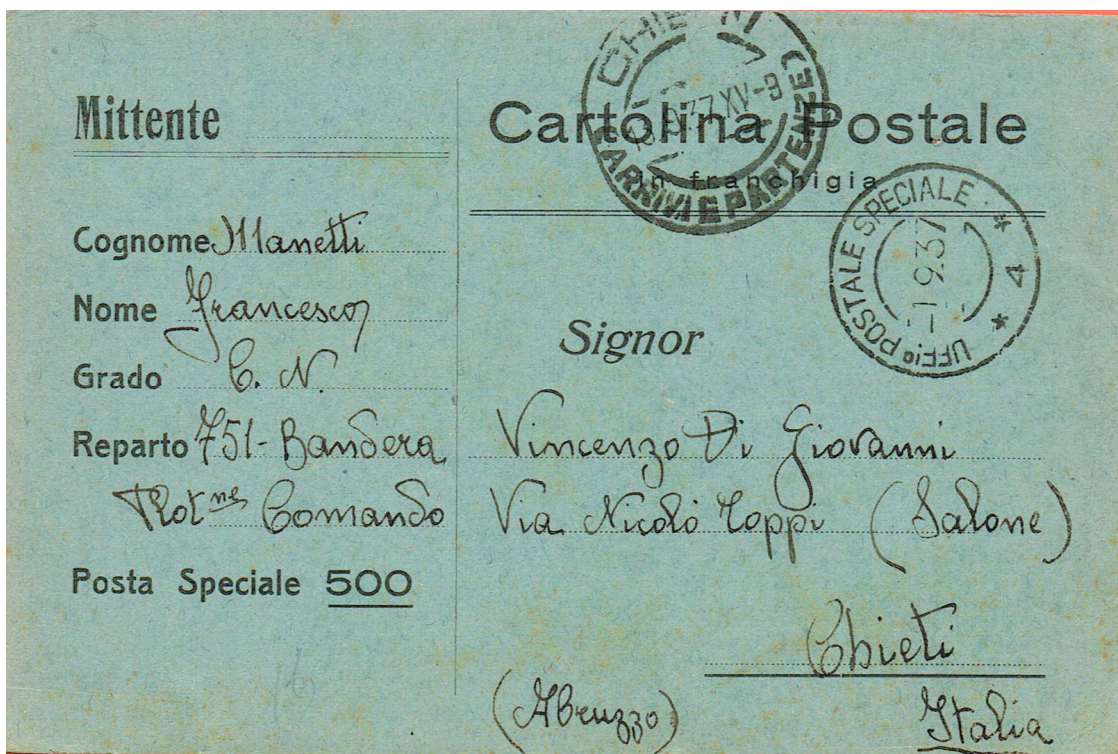 Mittente
Cognome Manetti
Nome Francesco
Grado C. N.
Reparto 751-Bandera
Plot.ne Comando
Posta Speciale 500
Cartolina Postale
in franchigia
CHIETI
ARRIVI E PARTENZE
37 XV-9
UFFIo POSTALE SPECIALE * 4 *
-1 9.37
Signor
Vincenzo Di Giovanni
Via Nicolò Toppi (Salone)
Chieti
(Abruzzo)
Italia